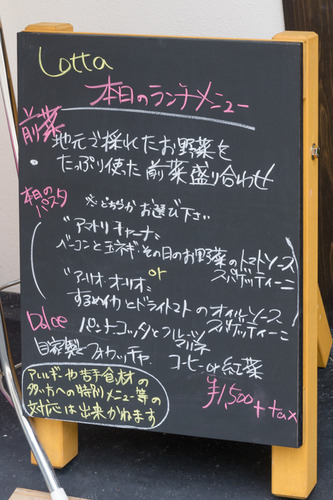 Lotta
本日のランチメニュー
前菜
地元で採れたお野菜を
たっぷり使た前菜盛り合わせ
本日のパスタ
※どちらかお選び下さい
"アマトリチャーナ"
ベーコンと玉ネギ・その日のお野菜のトマトソース
スパゲッティーニ
or
"アーリオ・オーリオ"
するめイカとドライトマトのオイルソース
スパゲッティーニ
Dolce
パンナコッタとフルーツ
マリネ
自家製フォカッチャ
コーヒーor紅茶
¥1,500++tax
アレルギーや苦手食材の
多い方への特別メニュー等の
対応は出来かねます